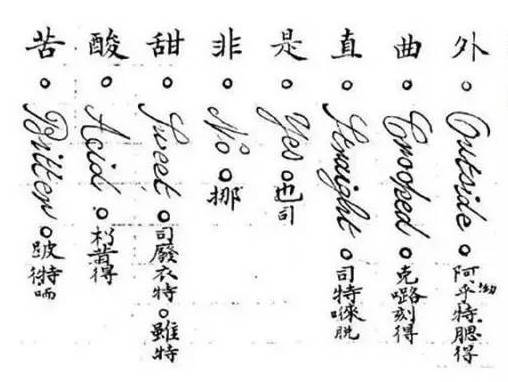 外。Outside。阿乎特腮得
曲。Crooked。克嚕刻得
直。Straight。司特喺脱
是。Yes。也司
非。No。挪
甜。Sweet。司廢衣特。雖特
酸。Acid。得
苦。Bitter。特